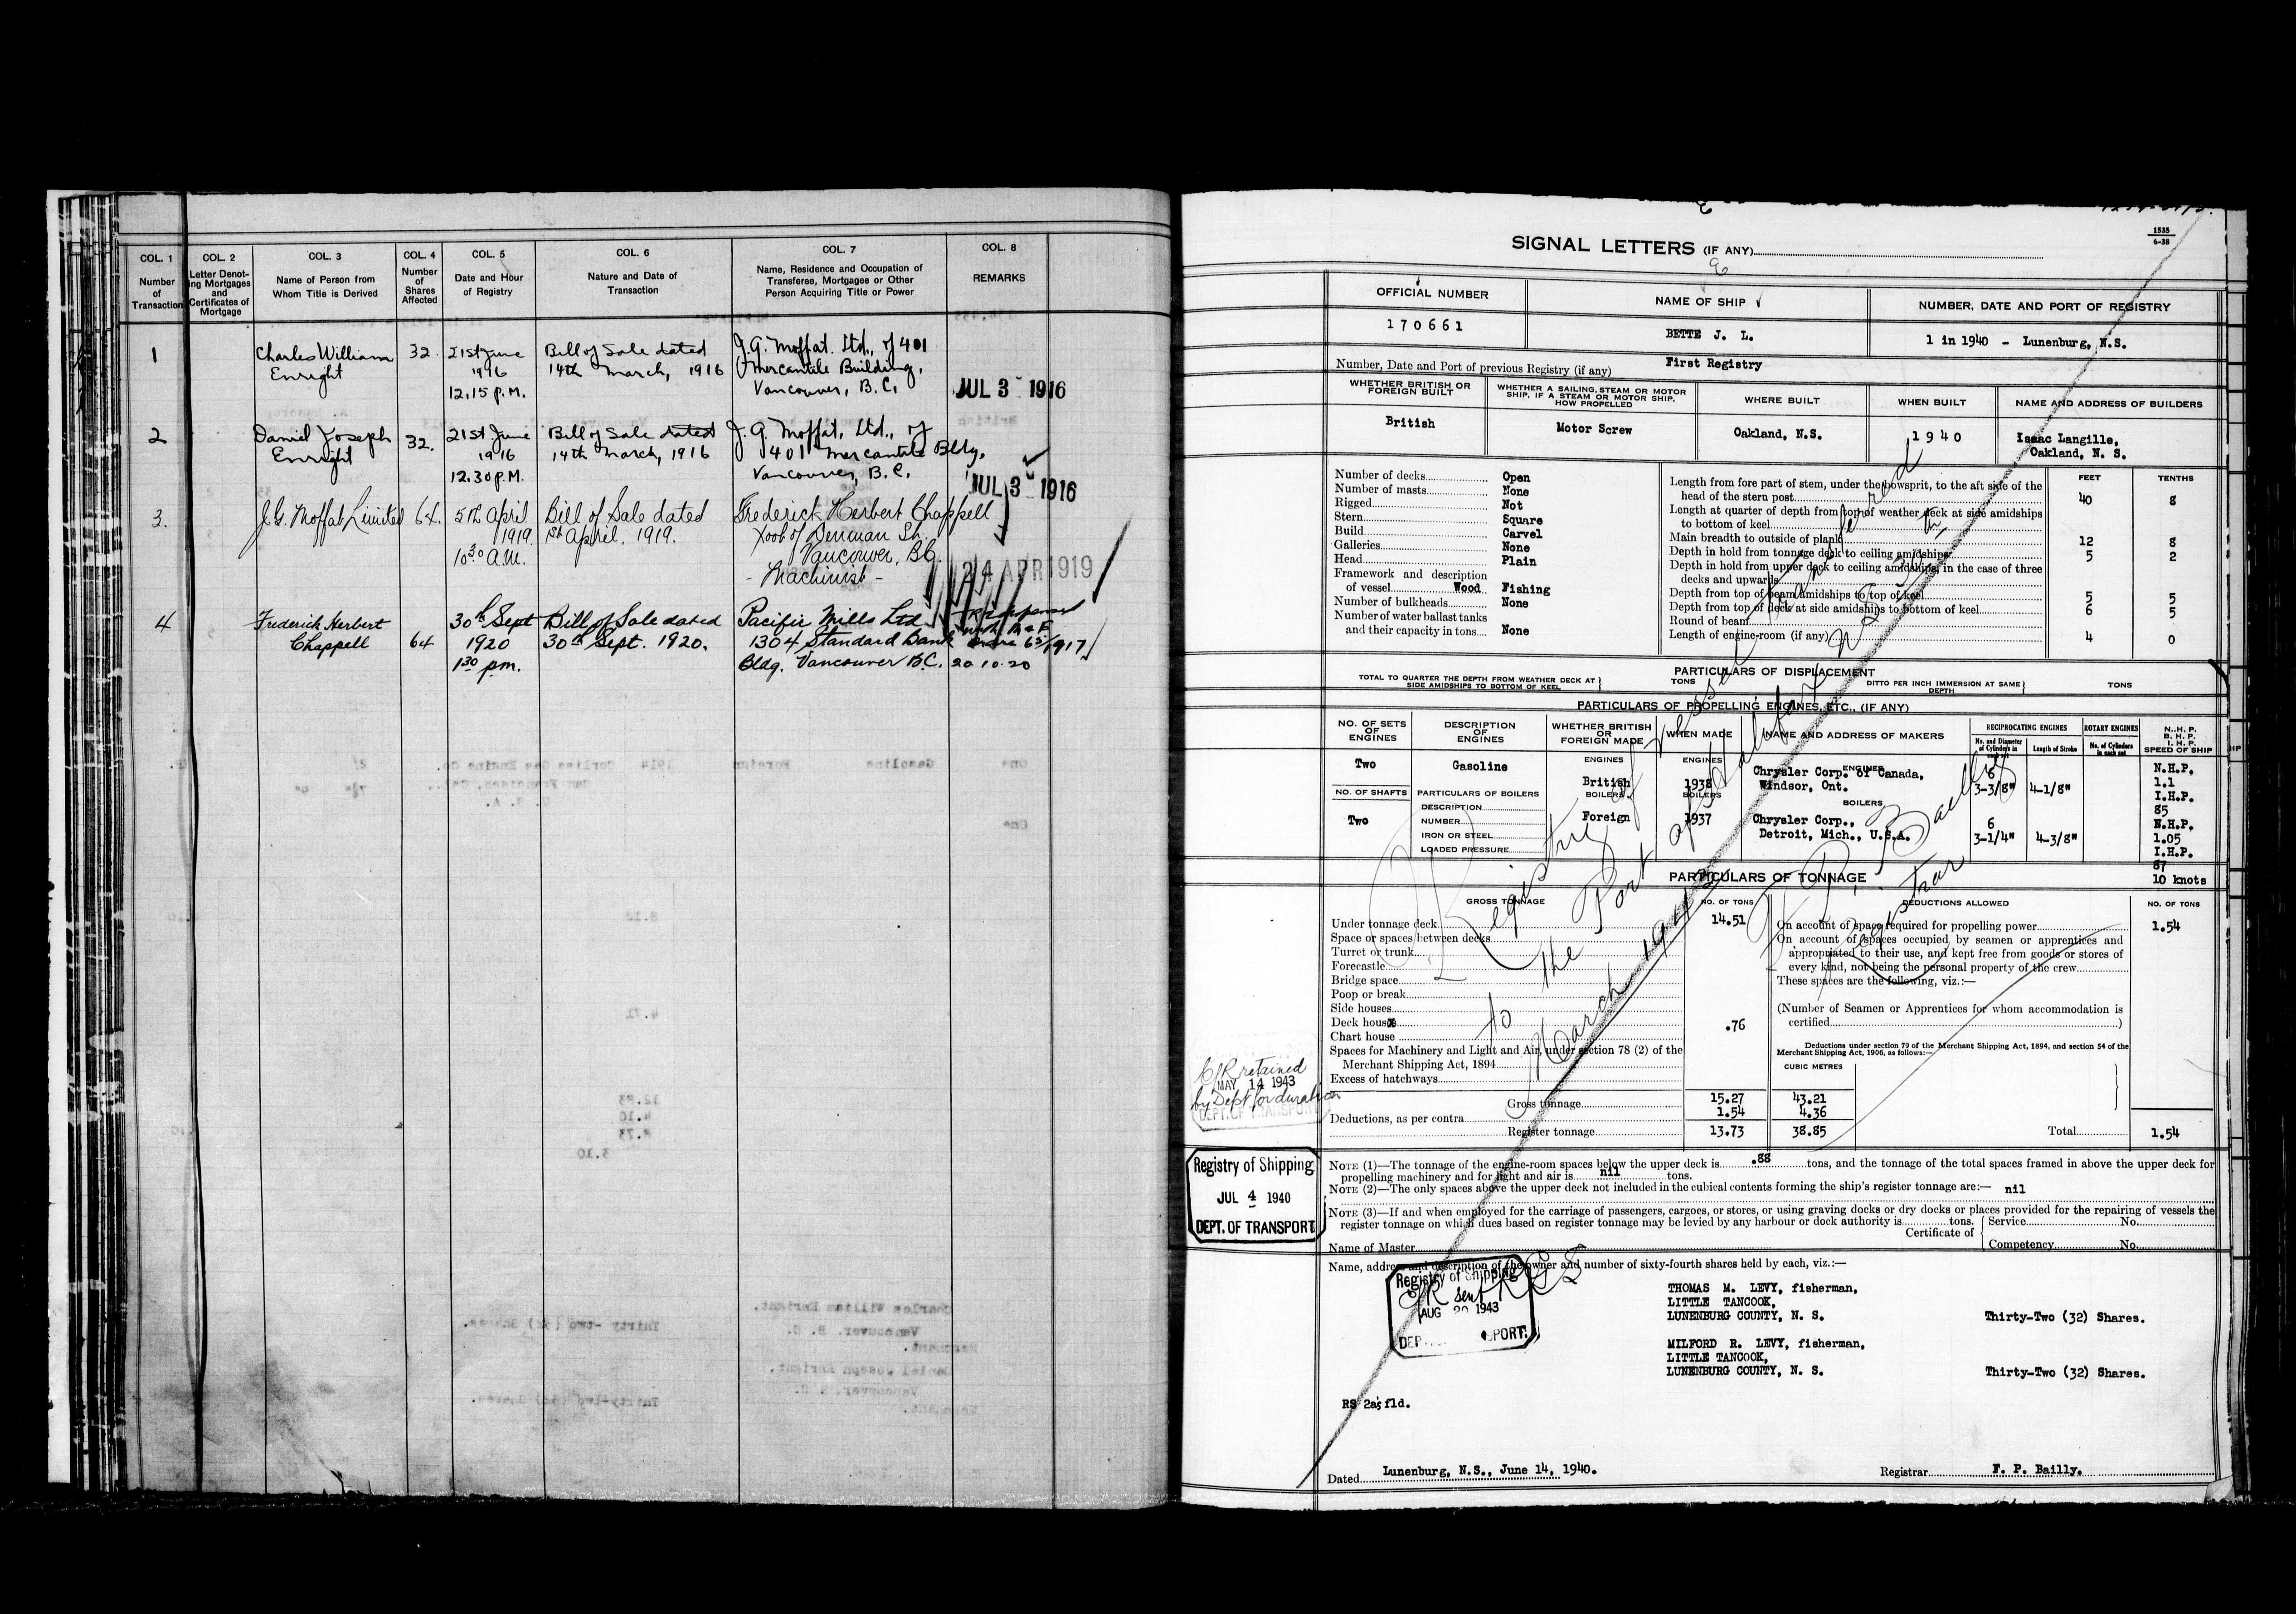 COL. 1
Number
of
Transaction
COL. 2
Letter Denot-
ing Mortgages
and
Certificates of
Mortgage
COL. 3
Name of Person from
Whom Title is Derived
COL. 4
Number
of
Shares
Affected
COL. 5
Date and Hour
of Registry
COL. 6
Nature and Date of
Transaction
COL. 7
Name, Residence and Occupation of
Transferee, Mortgagee or Other
Person Acquiring Title or Power
COL. 8
REMARKS
1
Charles William
Enright
32.
21st June
1916
12.15 p.m.
Bill of Sale dated
14th March, 1916
J.G. Moffat. Ltd., of 401
Mercantile Building,
Vancouver, B.C.
JUL 3 1916
2
Daniel Joseph
Enright
32.
21st June
1916
12.30 p.m.
Bill of Sale dated
14th March, 1916
J. G. Moffat, Ltd., of
401 Mercantile Bldg,
Vancouver, B.C.
JUL 3 1916
3.
J.G. Moffat Limited
64.
5th April
1919.
10 30 a.m.
Bill of Sale dated
1st April. 1919.
Frederick Herbert Chappell
foot of Denman St.
Vancouver, B.C.
- Machinist -
24 APR 1919
4
Frederick Herbert
Chappell
64
30th Sept
1920
1 30 pm.
Bill of Sale dated
30th Sept. 1920.
Pacific Mills Ltd
1304 Standard Bank
Bldg. Vancouver B.C.
63/1917
20.10.20
1535
6-38
SIGNAL LETTERS (IF ANY)
OFFICIAL NUMBER
NAME OF SHIP
NUMBER, DATE AND PORT OF REGISTRY
170661
BETTE J. L.
1 in 1940 - Lunenburg, N.S.
Number, Date and Port of previous Registry (if any)
First Registry
WHETHER BRITISH OR
FOREIGN BUILT
WHETHER A SAILING, STEAM OR MOTOR
SHIP, IF A STEAM OR MOTOR SHIP,
HOW PROPELLED
WHERE BUILT
WHEN BUILT
NAME AND ADDRESS OF BUILDERS
British
Motor Screw
Oakland, N.S.
1940
Isaac Langille,
Oakland, N. S.
Number of decks Open
Number of masts None
Rigged Not
Stern Square
Build Carvel
Galleries None
Head Plain
Framework and description
of vessel Wood Fishing
Number of bulkheads None
Number of water ballast tanks
and their capacity in tons None
FEET
TENTHS
Length from fore part of stem, under the bowsprit, to the aft side of the
head of the stern post 40 8
Length at quarter of depth from top of weather deck at side amidships
to bottom of keel
Main breadth to outside of plank 12 8
Depth in hold from tonnage deck to ceiling amidships 5 2
Depth in hold from upper deck to ceiling amidships, in the case of three
decks and upwards
Depth from top of beam amidships to top of keel 5 5
Depth from top of deck at side amidships to bottom of keel 6 5
Round of beam
Length of engine-room (if any) 4 0
PARTICULARS OF DISPLACEMENT
TOTAL TO QUARTER THE DEPTH FROM WEATHER DECK AT
SIDE AMIDSHIPS TO BOTTOM OF KEEL
TONS
DITTO PER INCH IMMERSION AT SAME
DEPTH
TONS
PARTICULARS OF PROPELLING ENGINES, ETC., (IF ANY)
NO. OF SETS
OF
ENGINES
DESCRIPTION
OF
ENGINES
WHETHER BRITISH
OR
FOREIGN MADE
WHEN MADE
NAME AND ADDRESS OF MAKERS
RECIPROCATING ENGINES
No. and Diameter
of Cylinders in
each set
Length of Stroke
ROTARY ENGINES
No. of Cylinders
in each set
N.H.P.
B.H.P.
I.H.P.
SPEED OF SHIP
Two
Gasoline
ENGINES
British
BOILERS
ENGINES
1938
BOILERS
ENGINES
Chrysler Corp. of Canada,
Windsor, Ont.
BOILERS
6
3-3/8"
4-1/8"
N.H.P.
1.1
I.H.P.
85
NO. OF SHAFTS
Two
PARTICULARS OF BOILERS
DESCRIPTION
NUMBER
IRON OR STEEL
LOADED PRESSURE
Foreign
1937
Chrysler Corp.,
Detroit, Mich., U.S.A.
6
3-1/4"
4-3/8"
N.H.P.
1.05
I.H.P.
87
10 knots
PARTICULARS OF TONNAGE
GROSS TONNAGE
NO. OF TONS
DEDUCTIONS ALLOWED
NO. OF TONS
Under tonnage deck 14.51
Space or spaces between decks
Turret or trunk
Forecastle
Bridge space
Poop or break
Side houses
Deck house .76
Chart house
Spaces for Machinery and Light and Air, under section 78 (2) of the
Merchant Shipping Act, 1894
Excess of hatchways
Gross tonnage 15.27 43.21
Deductions, as per contra 1.54 4.36
Register tonnage 13.73 38.85
On account of space required for propelling power 1.54
On account of spaces occupied by seamen or apprentices and
appropriated to their use, and kept free from goods or stores of
every kind, not being the personal property of the crew
These spaces are the following, viz.:—
(Number of Seamen or Apprentices for whom accommodation is
certified )
Deductions under section 79 of the Merchant Shipping Act, 1894, and section 54 of the
Merchant Shipping Act, 1906, as follows:—
CUBIC METRES
Total 1.54
Registry of vessel transferred
to the Port of Halifax N S
March 1943
F. P. Bailly
Registrar
C/R retained
MAY 14 1943
by Dept for duration
DEPT. OF TRANSPORT
Registry of Shipping
JUL 4 1940
DEPT. OF TRANSPORT
NOTE (1)—The tonnage of the engine-room spaces below the upper deck is .88 tons, and the tonnage of the total spaces framed in above the upper deck for
propelling machinery and for light and air is nil tons.
NOTE (2)—The only spaces above the upper deck not included in the cubical contents forming the ship's register tonnage are:— nil
NOTE (3)—If and when employed for the carriage of passengers, cargoes, or stores, or using graving docks or dry docks or places provided for the repairing of vessels the
register tonnage on which dues based on register tonnage may be levied by any harbour or dock authority is tons.
Name of Master
Certificate of
Service No.
Competency No.
Name, address and description of the owner and number of sixty-fourth shares held by each, viz.:—
Registry of Shipping
C/R sent RGS
AUG 20 1943
THOMAS M. LEVY, fisherman,
LITTLE TANCOOK,
LUNENBURG COUNTY, N. S. Thirty-Two (32) Shares.
MILFORD R. LEVY, fisherman,
LITTLE TANCOOK,
LUNENBURG COUNTY, N. S. Thirty-Two (32) Shares.
RS 2a; fld.
Dated Lunenburg, N.S., June 14, 1940.
Registrar F. P. Bailly.